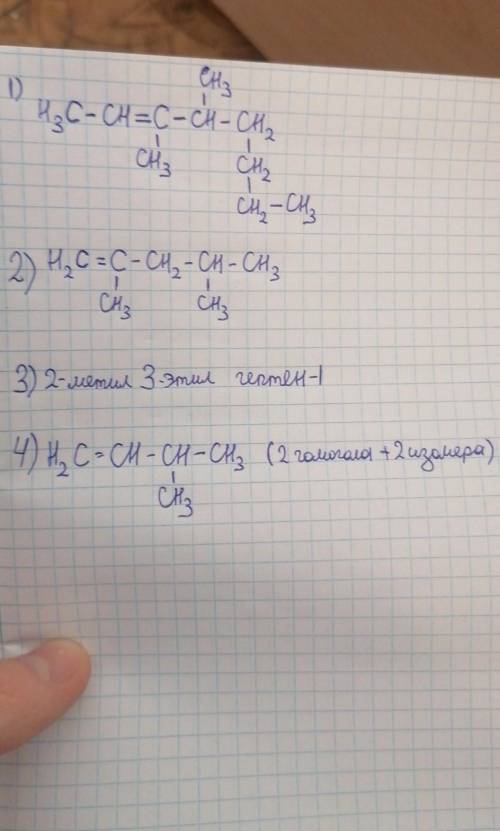 1)
CH3
H3C-CH=C-CH-CH2
CH3 CH2
CH2-CH3
2) H2C=C-CH2-CH-CH3
CH3 CH3
3) 2-метил 3-этил гептен-1
4) H2C=CH-CH-CH3 (2 гомолога + 2 изомера)
CH3